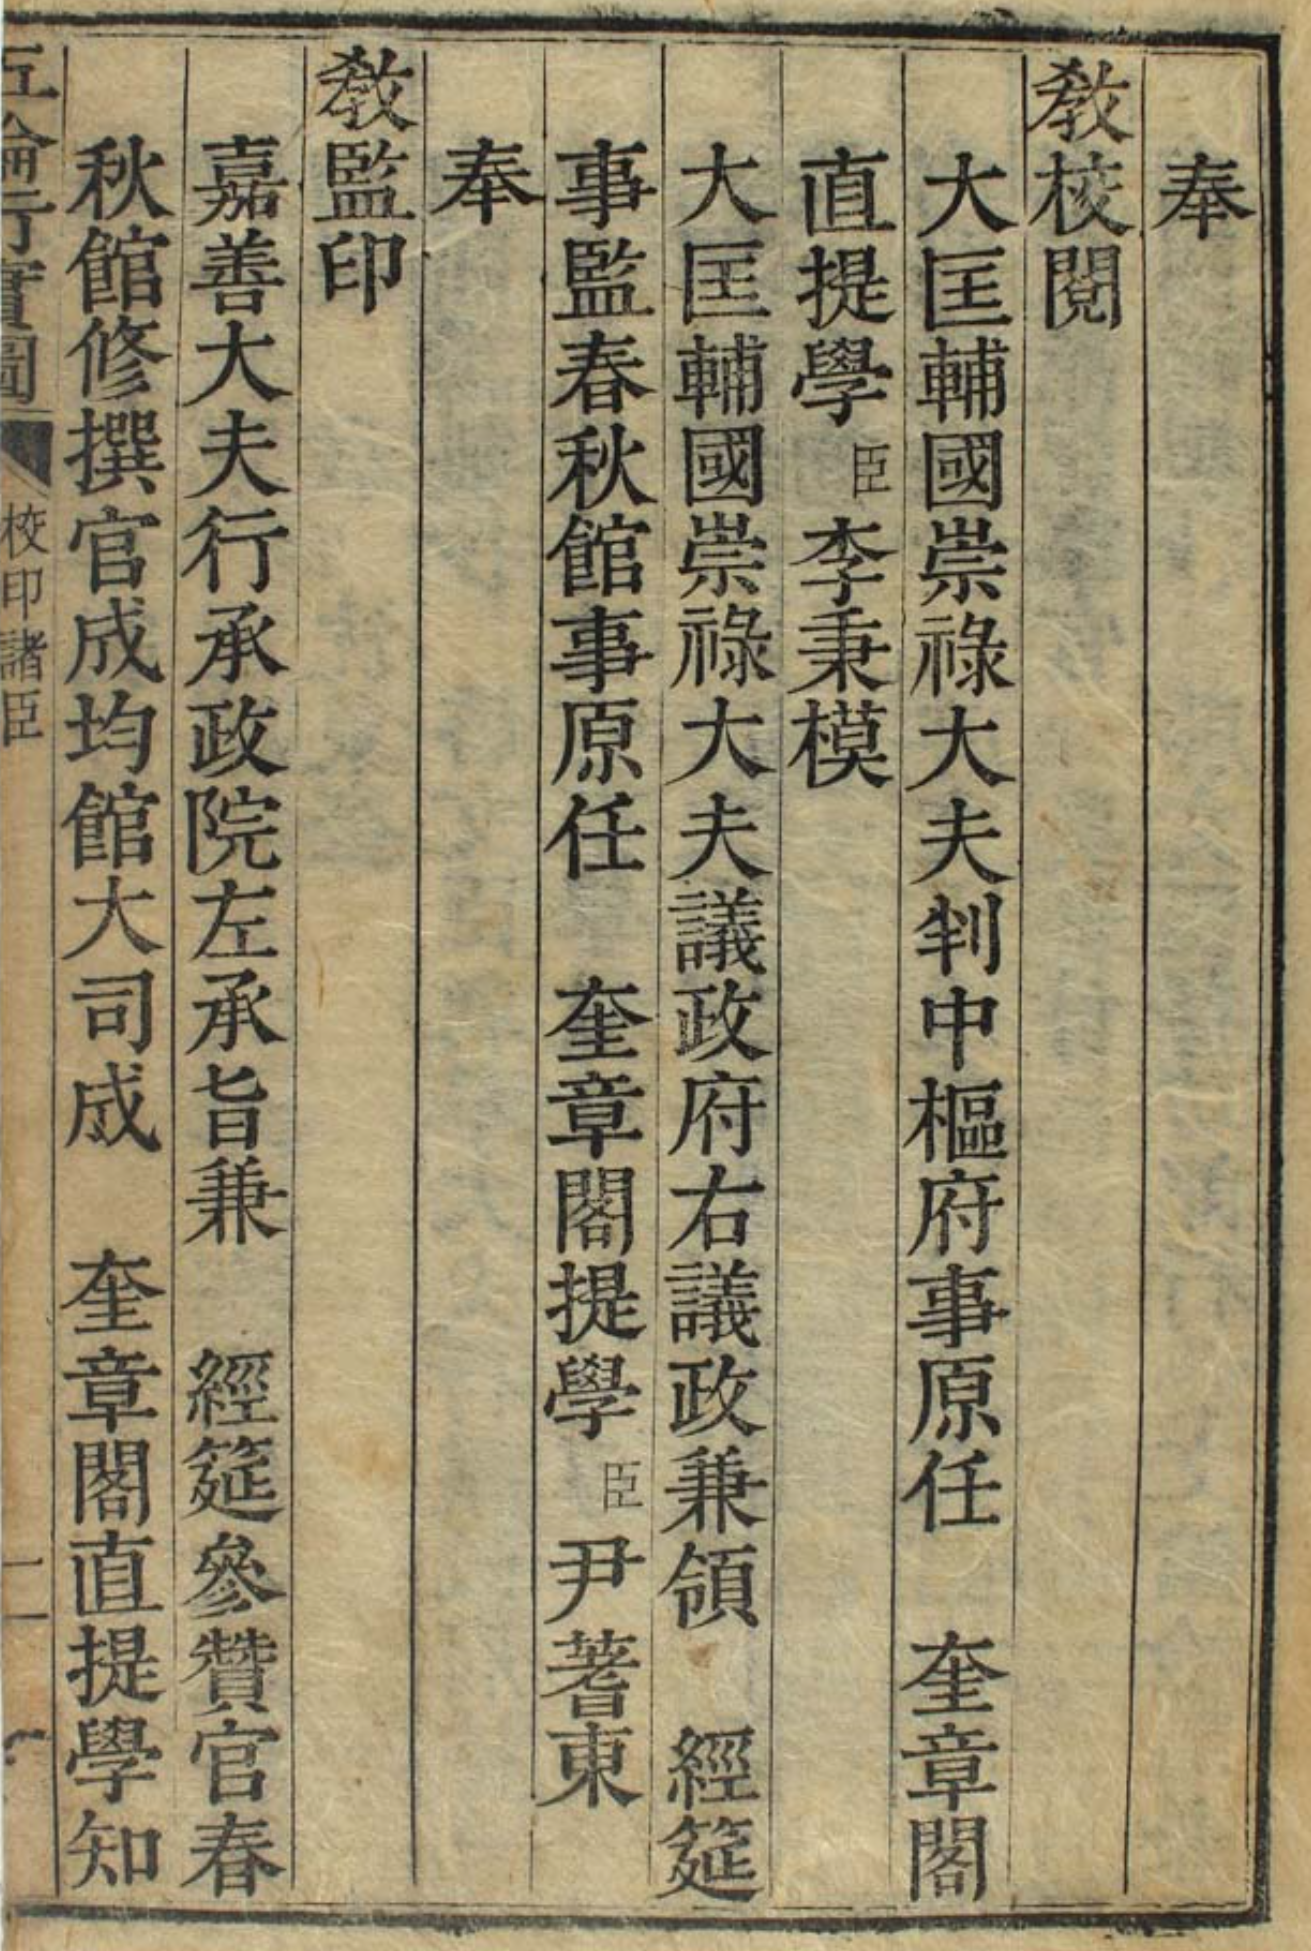 奉
敎校閱
大匡輔國崇祿大夫判中樞府事原任　奎章閣
直提學臣李秉模
大匡輔國崇祿大夫議政府右議政兼領　經筵
事監春秋館事原任　奎章閣提學臣尹蓍東
奉
敎監印
嘉善大夫行承政院左承旨兼　經筵參贊官春
秋館修撰官成均館大司成　奎章閣直提學知
五倫行實圖　校印諸臣　二